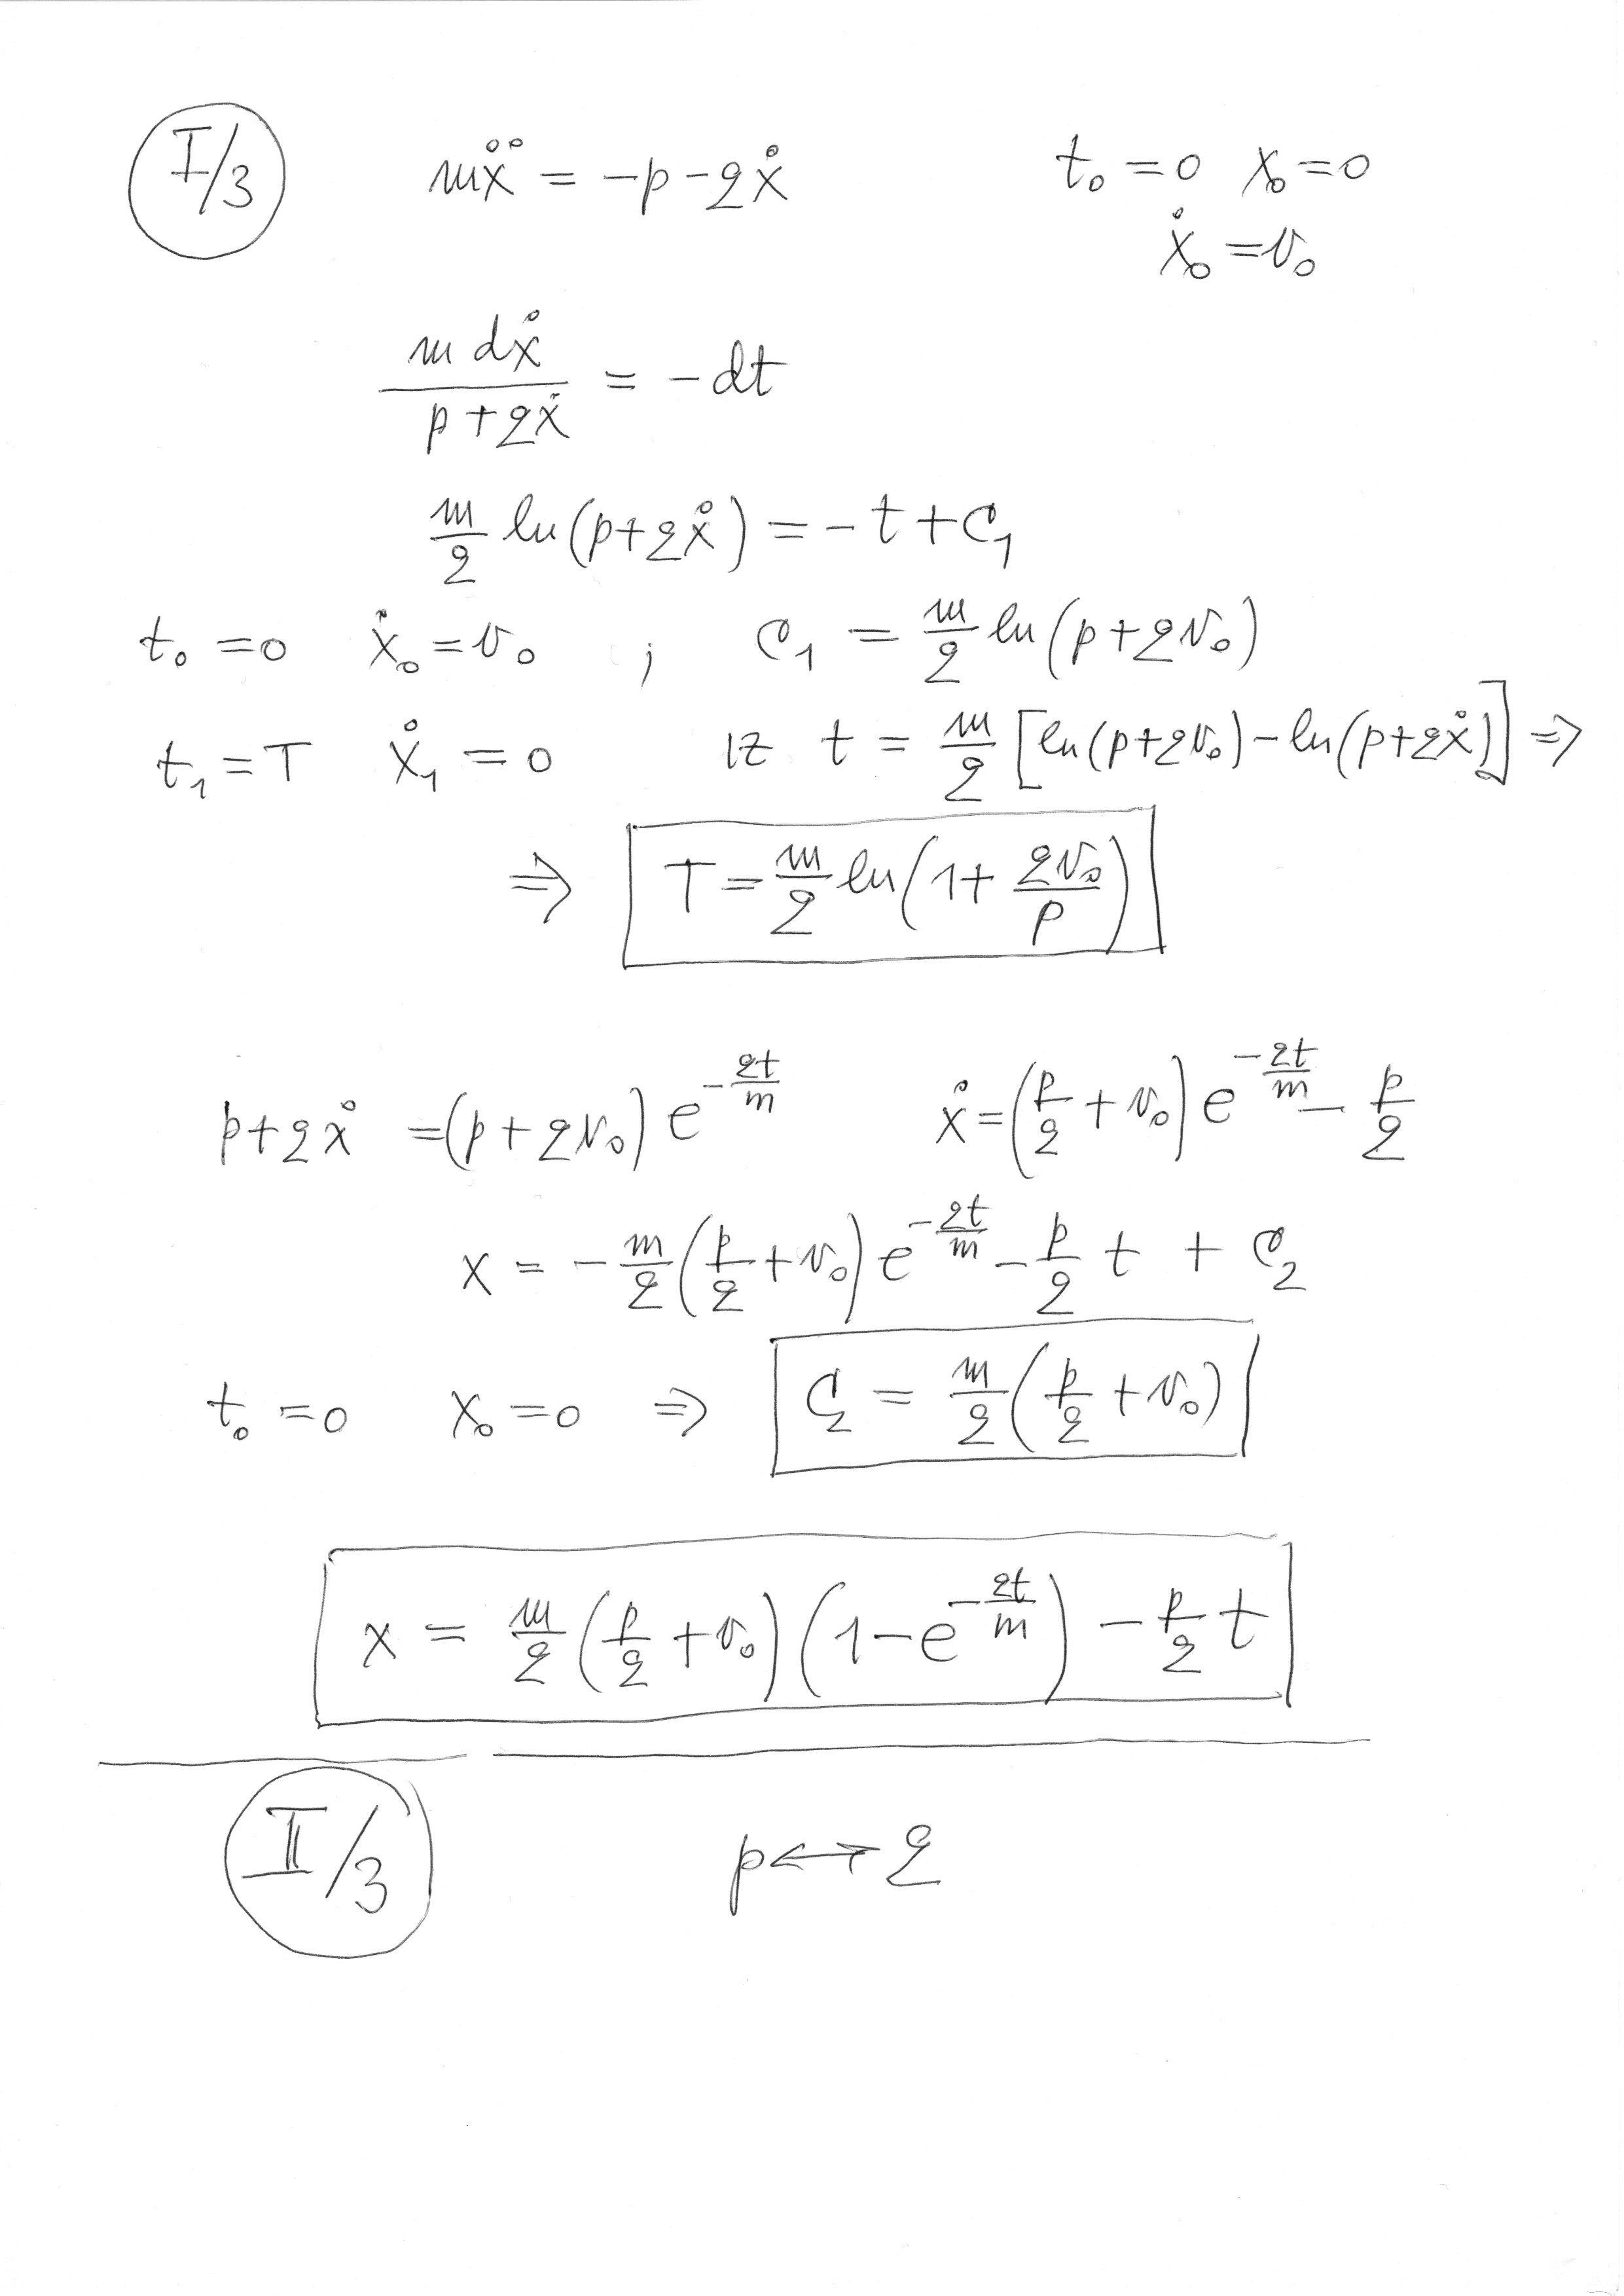 I/3 mẍ = -p - qẋ t₀ = 0 x₀ = 0
ẋ₀ = v₀
m dẋ / (p + qẋ) = -dt
m/q ln(p + qẋ) = -t + C₁
t₀ = 0 ẋ₀ = v₀ ; C₁ = m/q ln(p + qv₀)
t₁ = T ẋ₁ = 0 iz t = m/q [ln(p + qv₀) - ln(p + qẋ)] ⇒
⇒ T = m/q ln(1 + qv₀/p)
p + qẋ = (p + qv₀) e^(-qt/m) ẋ = (p/q + v₀) e^(-qt/m) - p/q
x = -m/q (p/q + v₀) e^(-qt/m) - p/q t + C₂
t₀ = 0 x₀ = 0 ⇒ C₂ = m/q (p/q + v₀)
x = m/q (p/q + v₀)(1 - e^(-qt/m)) - p/q t
II/3 p ↔ q